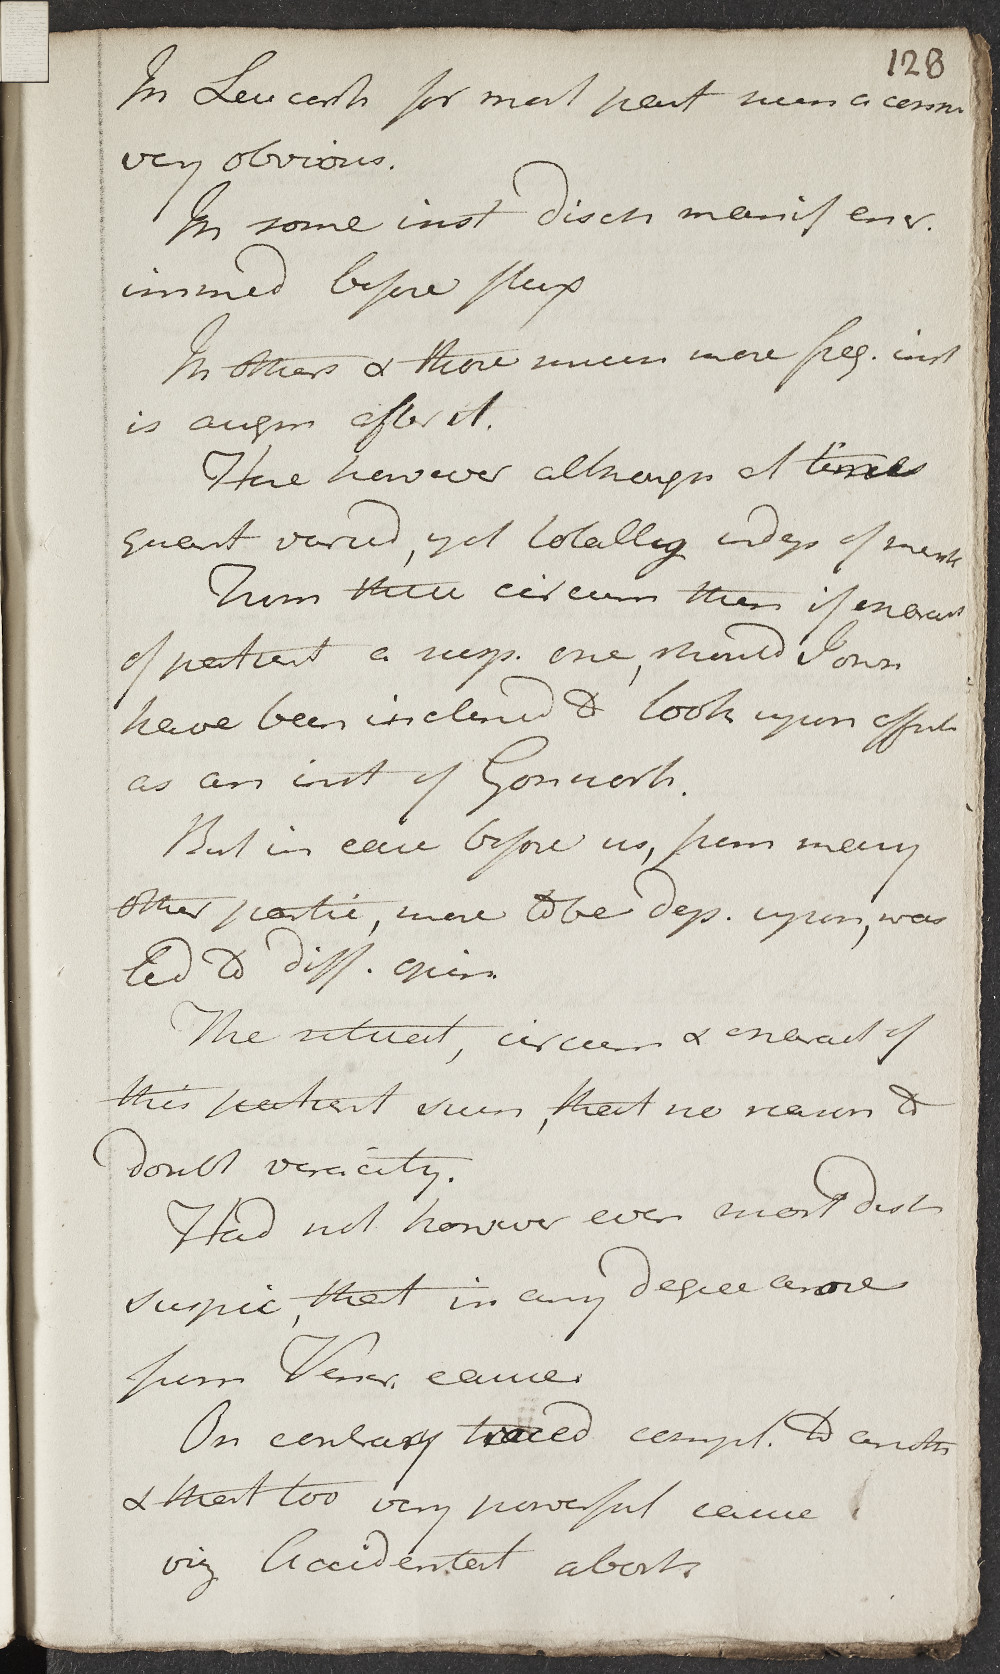 128
In Leucorrh for most part mens a
very obvious.
In some inst disch manif
immed before flux
In others & those more freq. inst
is augm after it.
Here however although at times
quant varied, yet totally indep of
From these circum then if charact
of patient a one, should I own
have been inclined to look upon
as an inst of Gonnorh.
But in case before us, from many
other partic, more to be dep. upon, was
led to diff. opin
The situat, circum & charact of
this patient such, that no reason to
doubt veracity.
Had not however even most dist
suspic, that in any degree arose
from Vener. cause
On contrary traced compl. to anoth
& that too very powerful cause
viz Accidental abort.